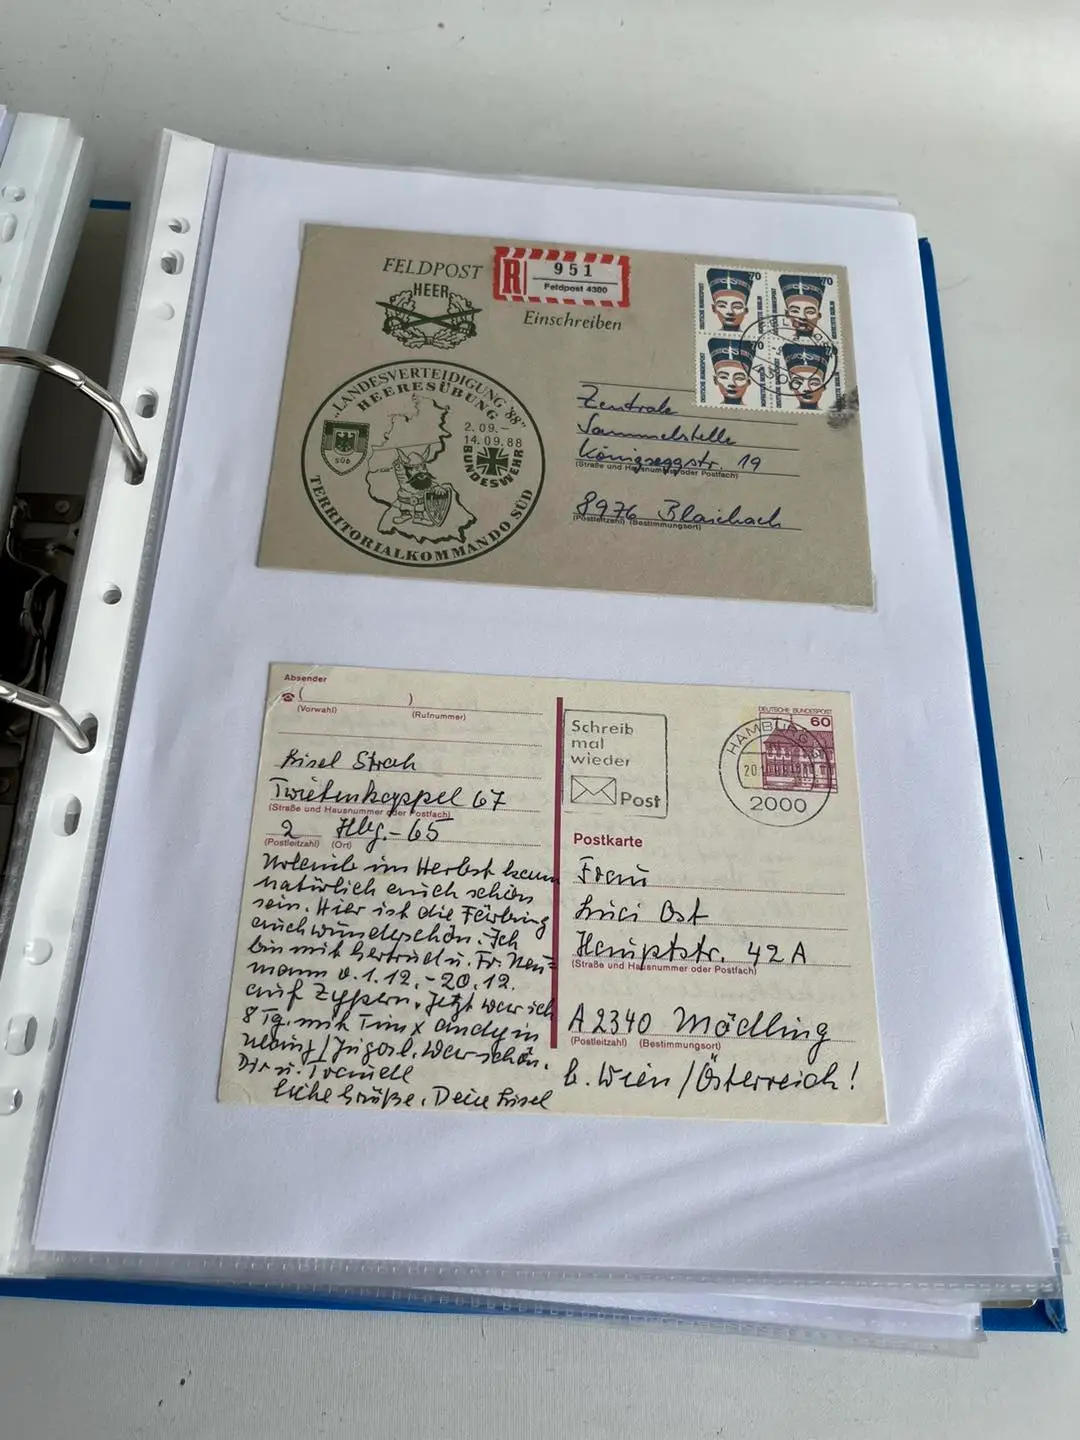 FELDPOST
HEER
R 951
Feldpost 4300
Einschreiben
70
70
70
DEUTSCHE BUNDESPOST
NOFRETETE BERLIN
DEUTSCHE BUNDESPOST
NOFRETETE BERLIN
„LANDESVERTEIDIGUNG '88"
HEERESÜBUNG
2.09.–
14.09.88
BUNDESWEHR
SÜD
TERRITORIALKOMMANDO SÜD
Zentrale
Sammelstelle
Königseggstr. 19
(Straße und Hausnummer oder Postfach)
8976 Blaichach
(Postleitzahl) (Bestimmungsort)
Absender
( )
(Vorwahl) (Rufnummer)
Twietenkoppel 67
(Straße und Hausnummer oder Postfach)
2 Hbg.-65
(Postleitzahl) (Ort)
Urlaub im Herbst kann
natürlich auch schön
sein. Hier ist die Färbung
auch wunderschön. Ich
bin mit Gertrud u. Fr. Neu=
mann v. 1.12.-20.12.
auf Zypern. Jetzt war ich
8 Tg. mit Tim x Andy in
/Jugosl. War schön.
Dir u.
liebe Grüße. Deine
Schreib
mal
wieder
Post
DEUTSCHE BUNDESPOST
60
HAMBURG
2000
Postkarte
Frau
Luci Ost
Hauptstr. 42 A
(Straße und Hausnummer oder Postfach)
A 2340 Mödling
(Postleitzahl) (Bestimmungsort)
b. Wien/Österreich!